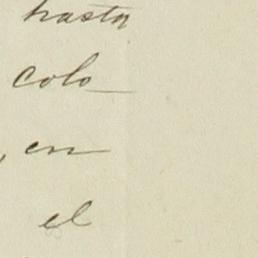 hasta
colo
, en
el